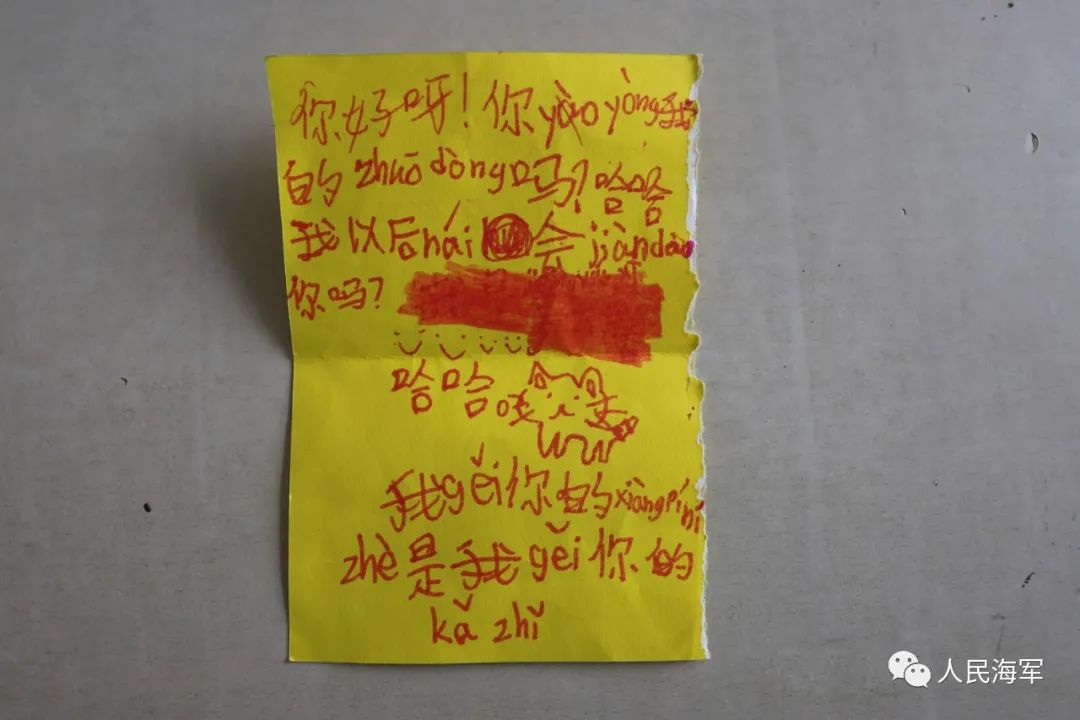 你好呀!你yào yòng我
的zhuō dòng吗?哈哈
我以后hái会jiàn dào
你吗?
哈哈
我gěi你的xiàng pí ní
zhè是我gěi你的
kǎ zhǐ
人民海军